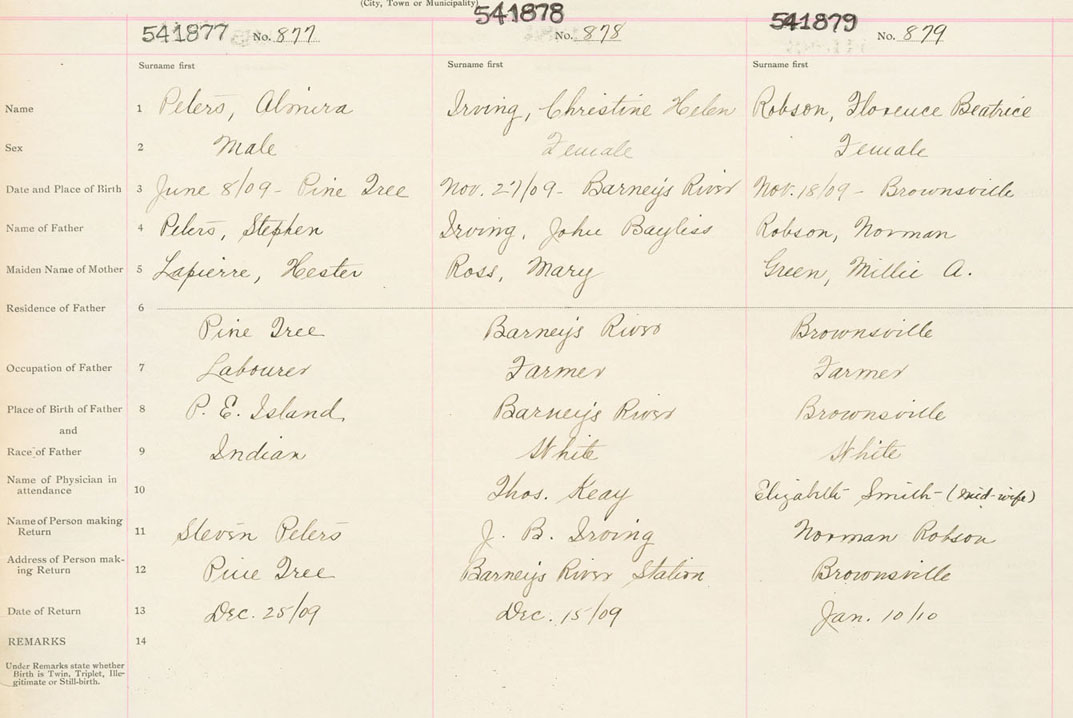 (City, Town or Municipality)
541877 No. 877 541878 No. 878 541879 No. 879
Surname first Surname first Surname first
Name 1 Peters, Almira Irving, Christine Helen Robson, Florence Beatrice
Sex 2 Male Female Female
Date and Place of Birth 3 June 8/09 - Pine Tree Nov. 27/09 - Barney's River Nov. 18/09 - Brownsville
Name of Father 4 Peters, Stephen Irving, John Bayliss Robson, Norman
Maiden Name of Mother 5 Lapierre, Hester Ross, Mary Green, Millie A.
Residence of Father 6
Pine Tree Barney's River Brownsville
Occupation of Father 7 Labourer Farmer Farmer
Place of Birth of Father 8 P. E. Island Barney's River Brownsville
and
Race of Father 9 Indian White White
Name of Physician in
attendance 10 Thos. Keay Elizabeth Smith - (mid-wife)
Name of Person making
Return 11 Steven Peters J. B. Irving Norman Robson
Address of Person mak-
ing Return 12 Pine Tree Barney's River Station Brownsville
Date of Return 13 Dec. 25/09 Dec. 15/09 Jan. 10/10
REMARKS 14
Under Remarks state whether
Birth is Twin, Triplet, Ille-
gitimate or Still-birth.